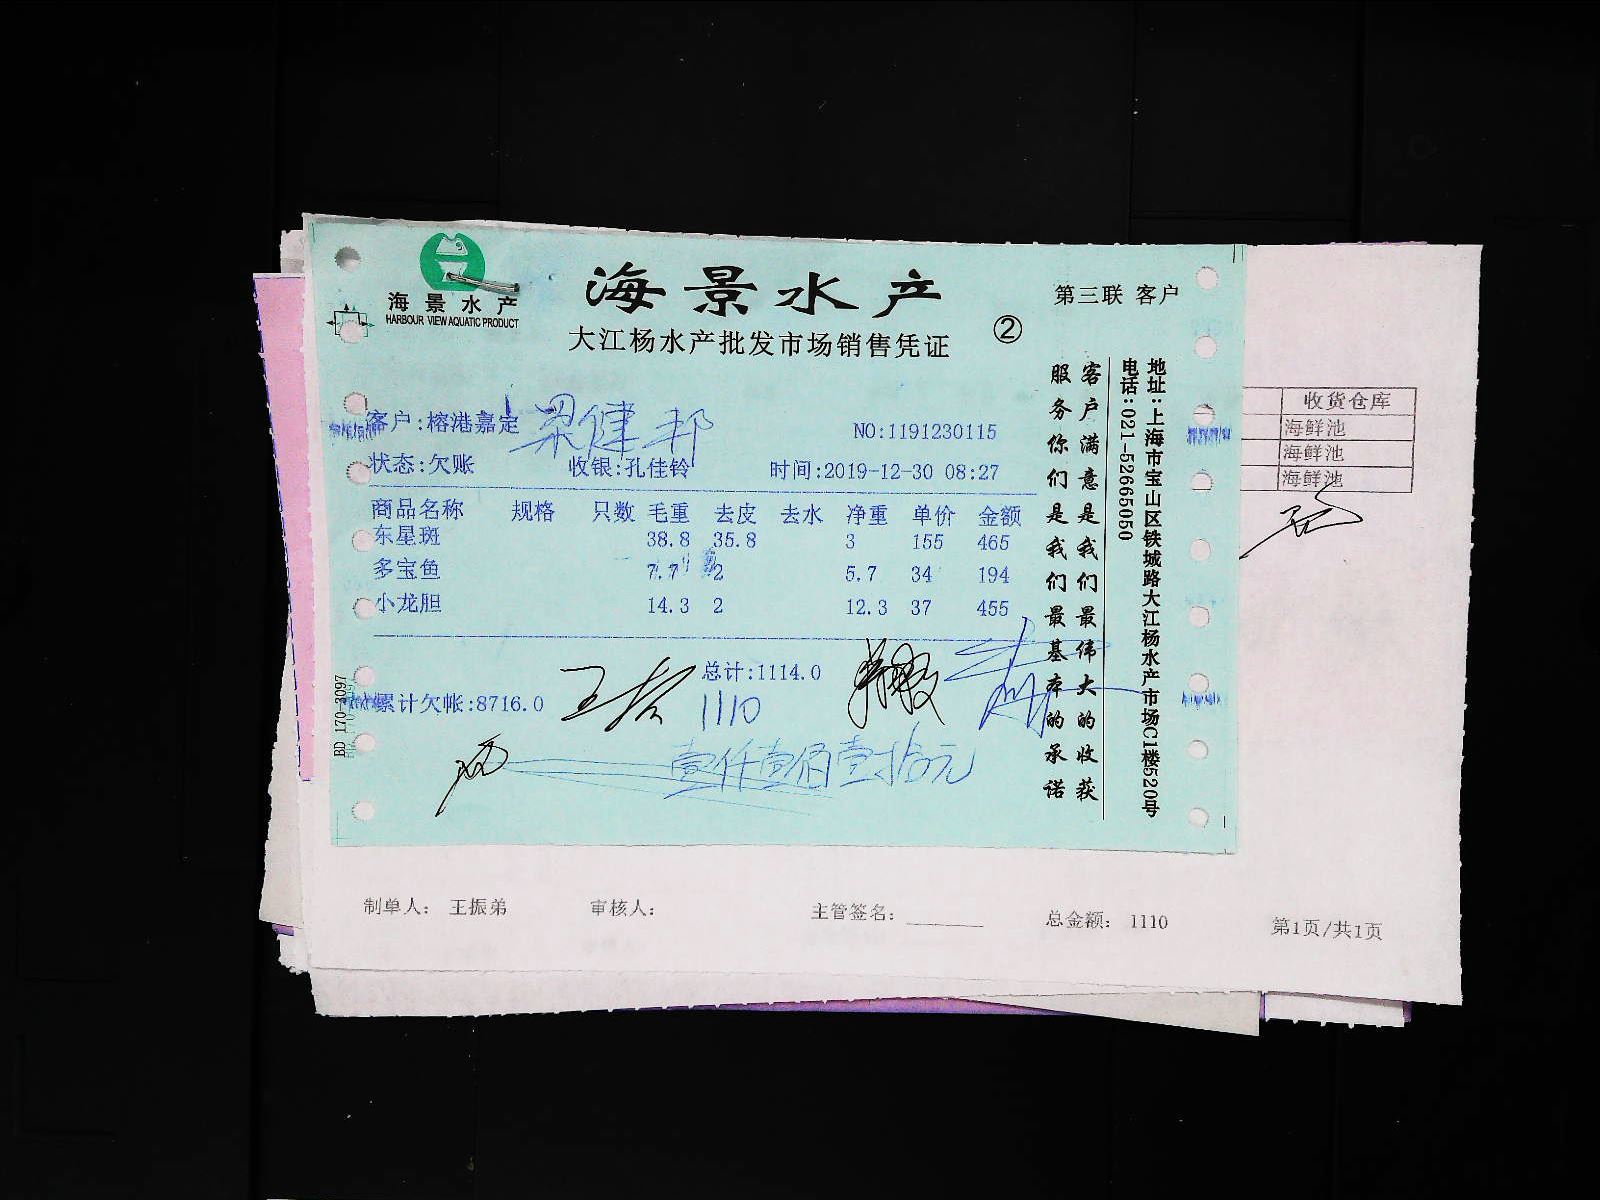 海景水产
HARBOUR VIEW AQUATIC PRODUCT
海景水产
第三联 客户
大江杨水产批发市场销售凭证
②
客户:榕港嘉定 梁健邦
NO:1191230115
状态:欠账 收银:孔佳铃 时间:2019-12-30 08:27
商品名称 规格 只数 毛重 去皮 去水 净重 单价 金额
东星斑 38.8 35.8 3 155 465
多宝鱼 7.7 2 5.7 34 194
小龙胆 14.3 2 12.3 37 455
总计:1114.0
累计欠帐:8716.0
1110
壹仟壹佰壹拾元
客户满意是我们最伟大的收获
服务你们是我们最基本的承诺
地址:上海市宝山区铁城路大江杨水产市场C1楼520号
电话:021-52665050
BD 170-3097
收货仓库
海鲜池
海鲜池
海鲜池
制单人: 王振弟 审核人: 主管签名: 总金额: 1110 第1页/共1页